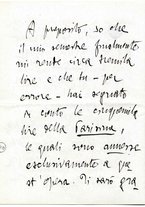 A proposito, so che
il mio semestre finalmente
mi rende circa tremila
lire e che tu - per
errore - hai segnato
a conto le cinquemila
lire della Farinma,
le quali sono annesse
esclusivamente a que
st'opera. Ti sarò gra